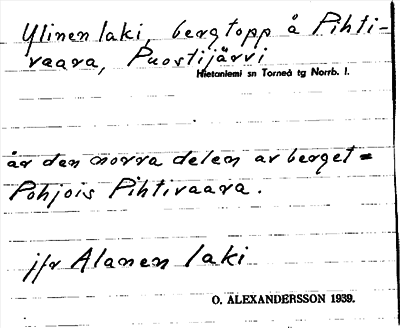 Ylinen laki, bergtopp å Pihti-
vaara, Puostijärvi
Hietaniemi sn Torneå tg Norrb. l.
är den norra delen av berget =
Pohjois Pihtivaara.
jfr Alanen laki
O. ALEXANDERSSON 1939.